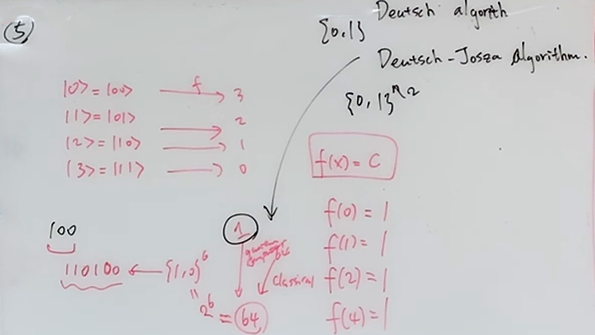 5
{0,1} Deutsch algorith
Deutsch-Josza Algorithm.
{0,1}^n,2
|0> = |00> → f 3
|1> = |01> 2
|2> = |10> → 1
|3> = |11> → 0
f(x) = C
f(0) = 1
f(1) = 1
f(2) = 1
f(4) = 1
100
110100 ← {1,0}^6
1
quantum
classical
" 2^6 = 64